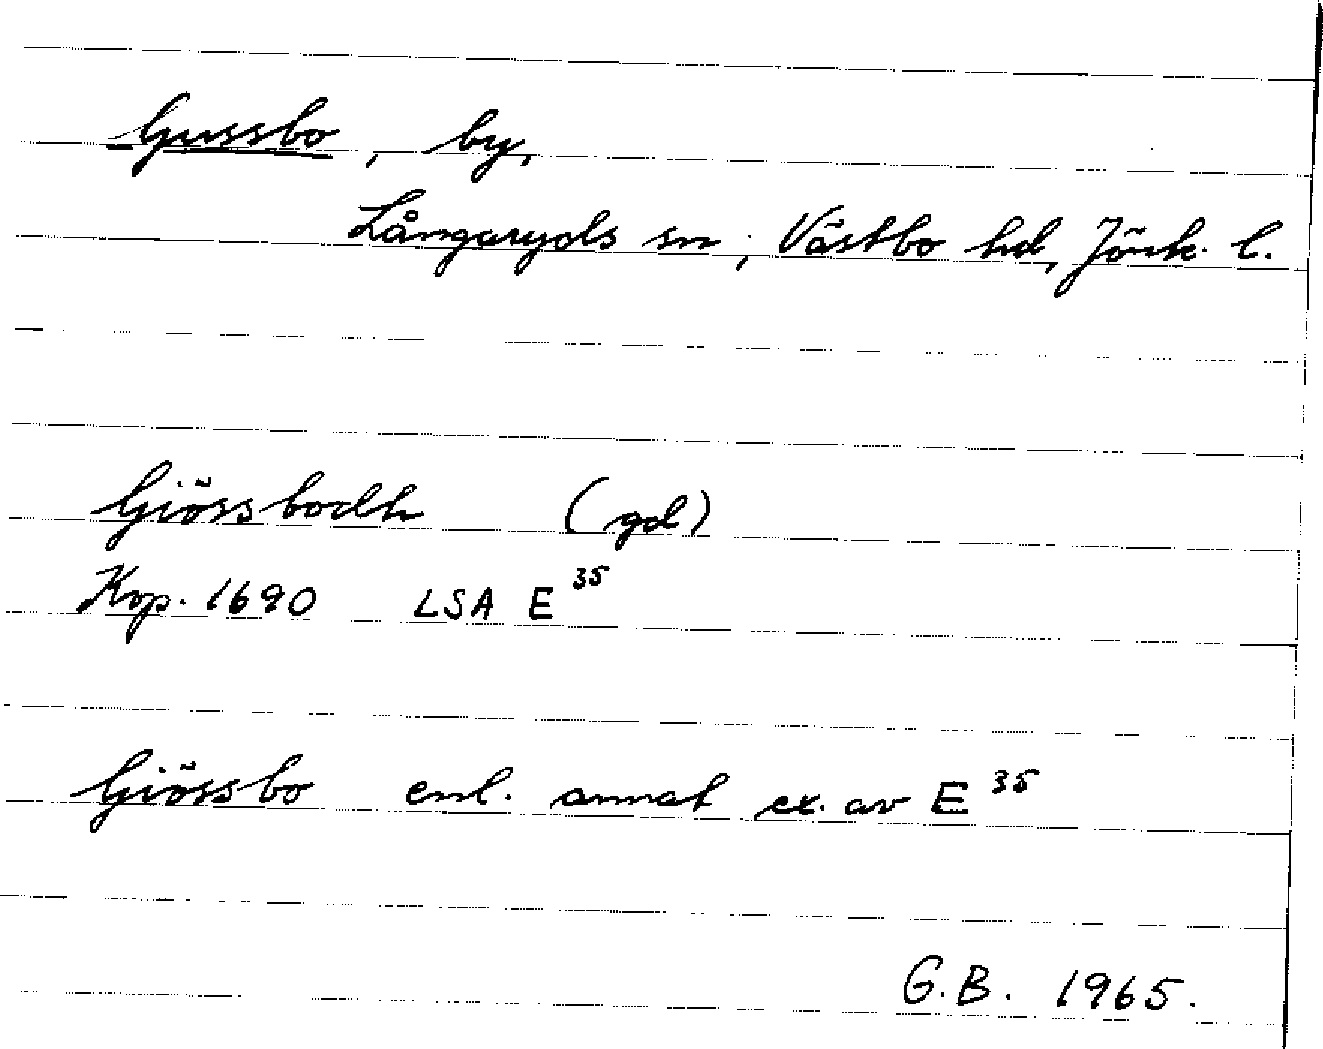 Gussbo, by,
Långaryds sn, Västbo hd, Jönk. l.
Giössbodh (gd)
Kop. 1690 LSA E 35
Giössbo enl. annat ex. av E 35
G.B. 1965.